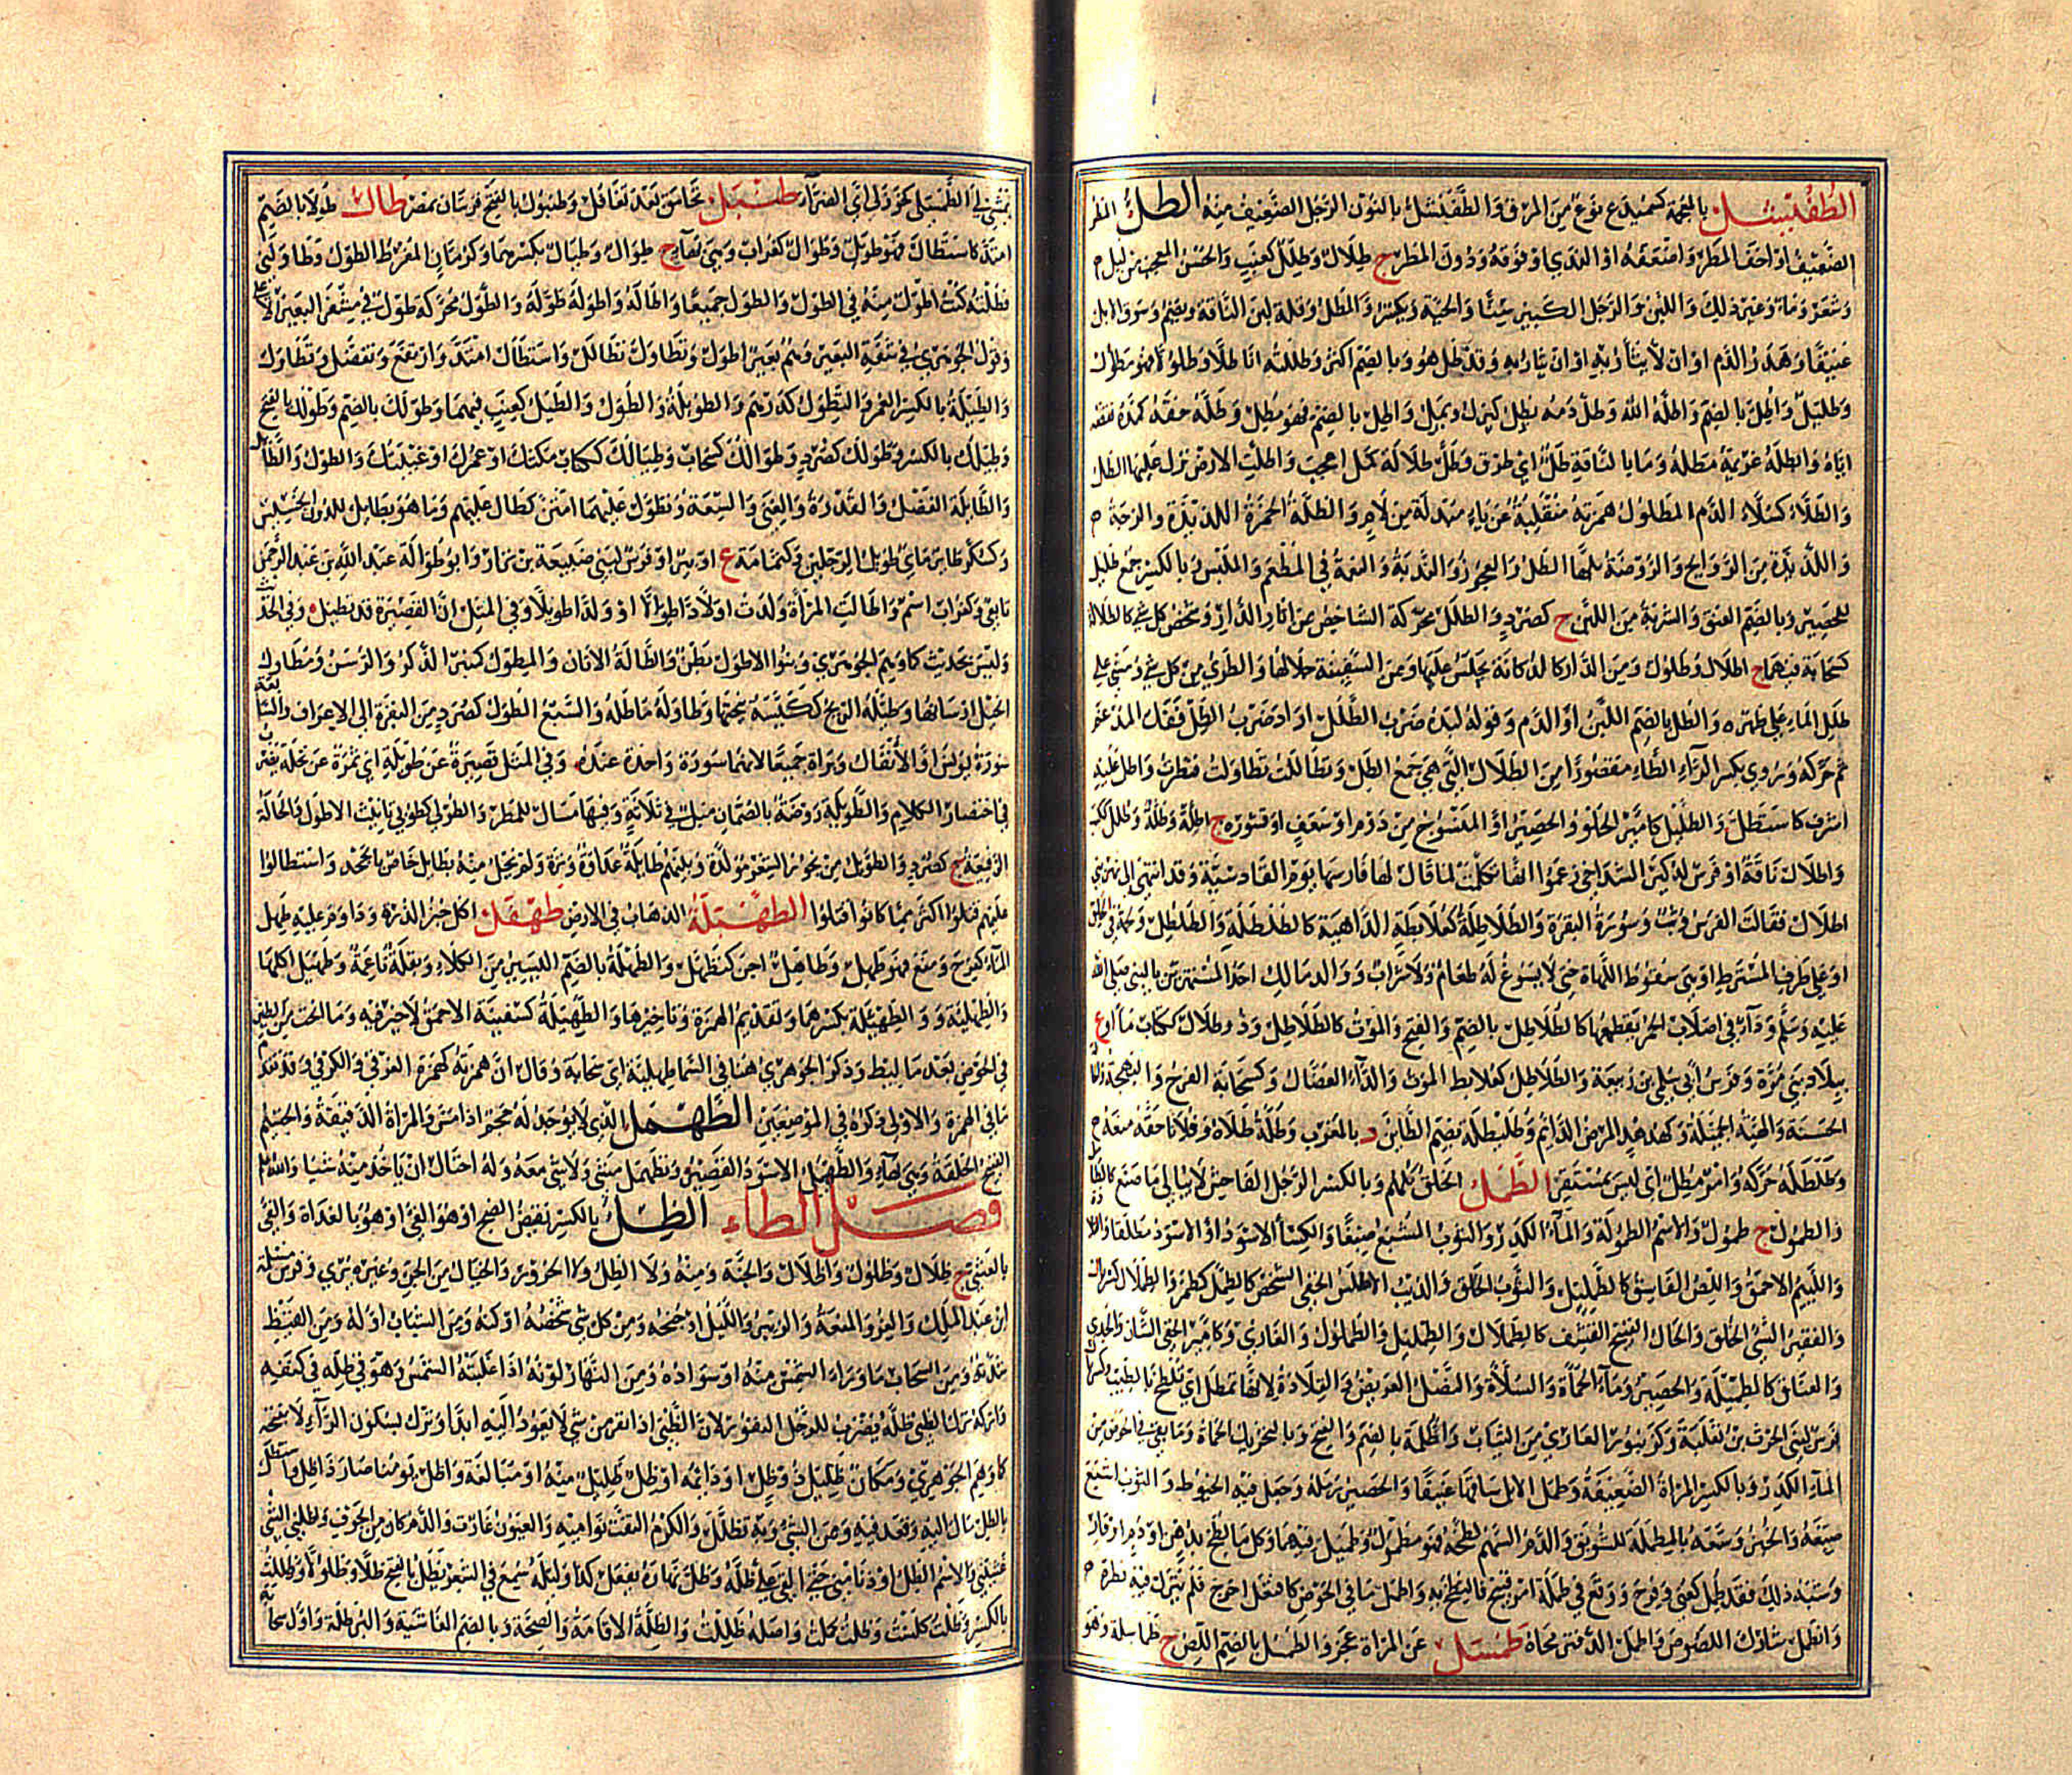 الطفيشل بالمعجمة كسميدع نوع من المرق والطفنشل بالنون الرجل الضعيف منه الطل المطر
الضعيف او اخف المطر واضعفه او الندي او فوقه ودون المطر ج طلال وطلل كعنب والحسن المعجب من ليل
وشعر وماء وغير ذلك واللبن والرجل الكبير سنا والحية ويكسر والمطل وقلة لبن الناقة ويضم وسوق الابل
عنيفا وهدر الدم او ان لا يثأر به او ان تقبل ديته وقد طل هو وبالضم اكثر وطللته انا طلا وطلولا فهو مطلول
وطليل واطل بالضم واطله الله وطل دمه يطل كيزل ويمل واطل بالضم فهو مطل وطله حقه كمده نقصه
اياه وابطله غريمه مطله وما بالناقة طل اي طرق وطل طلالة كمل اعجب واطلت الارض نزل عليها الطل
والطلاء كسلاء الدم المطلول همزته منقلبة عن ياء مبدلة من لام والطلة الخمرة اللذيذة والزوجة
واللذيذة من الروايح والروضة بلها الطل والعجوز والبذية والنعمة في المطعم والملبس وبالكسر جمع طليل
للحصير وبالضم العنق والشربة من اللبن ج كصرد والطلل محركة الشاخص من اثار الدار وشخص كل شي كالطلالة
كسحابة فيهما ج اطلال وطلول ومن الدار كالدكانة يجلس عليها ومن السفينة جلالها والطري من كل شي ومشى على
طلل الماء على ظهره والطل بالضم اللبن او الدم وقوله لبده ضرب الطلل اراد ضرب الطل ففك المدغم
ثم حركه ويروى بكسر الراء الطاء مقصورا من الطلال التي هي جمع الطل وتطاللت تطاولت فنظرت واطل عليه
اشرف كاستطل والطليل كامير الخلق والحصير او المنسوج من دوم او سعف او قشوره ج اطلة وطلة وطلل ككتب
واطلال ناقة او فرس لبكير الشداخي زعموا انها تكلمت لما قال لها فارسها يوم القادسية وقد انتهى الى نهر ثبي
اطلال فقالت الفرس وثب وسورة البقرة والطلاطلة كعلابطة الداهية كالطلطلة والطلطل ولحمة في الحلق
او على طرف المسترط او هي سقوط اللهاة حتى لا يسوغ له طعام ولا شراب ووالد مالك احد المستهزئين بالنبي صلى الله
عليه وسلم وداء في اصلاب الحمر يقطعها كالطلاطل بالضم والفتح والموت كالطلاطل وذو طلال ككتاب ماء او ع
ببلاد بني مرة وفرس ابي سلمى بن ربيعة والطلاطل كعلابط الموت والداء العضال وكسحابة الفرح والبهجة والحال
الحسنة والهيئة الجميلة وكهدهد المرض الدايم وطليطلة بضم الطاين د بالمغرب وطلة طلاه وفلانا حقه منعه
وطلطله حركه وامر مطل اي ليس بمستقر الطمل الخلق كلهم وبالكسر الرجل الفاحش لا يبالي ما صنع كالطا
والطمول ج طمول والاسم الطمولة والماء الكدر والثوب المشبع صبغا والكساء الاسود او الاسود مطلقا والقلا
واللئيم الاحمق واللص الفاسق كالطمليل والثوب الخلق والذيب الاطلس الخفي الشخص كالطمل كطمر والطملال كسربال
والفقير السئ الخلق والحال القبيح القشف كالطملال والطمليل والطملول والعاري وكامير الخفي الشان والجدي
والعناق كالطميلة والحصير وماء الحمأة والسلاة والنصل العريض والقلادة لانها تطمل اي تلطخ بالطيب
فرس لبني الحرث بن ثعلبة وكزنبور العاري من الثياب والطملة بالضم والفتح وبالتحريك الحماة وما بقي في الحوض من
الماء الكدر وبالكسر المراة الضعيفة وطمل الابل ساقها عنيفا والحصير رمله وجعل فيه الخيوط والثوب اشبع
صبغه والخبز وسعه بالمطملة للشوبق والدم السهم لطخه فهو مطمول وطميل فيهما وكل ما لطخ بدهن او دم او قار
وشبه ذلك فقد طمل كعني وفرح ووقع في طملة امر قبيح فالتطخ به واطمل ما في الحوض كافتعل اخرج فلم يترك فيه قطرة
وانطمل شارك اللصوص واطمل الدفتر محاه طمسل عن المراة عجز والطمسل بالضم اللص ج طماسلة وهو
يمشي في الطمسلى كخوزلى اي الضراء طنبل تحامق بعد تعاقل وطنبول بالفتح قريتان بمصر طال طولا بالضم
امتد كاستطال فهو طويل وطوال كغراب وهي بهاء ج طوال وطيال بكسرهما وكرمان المفرط الطول وطاولني
فطلته كنت اطول منه في الطول والطول جميعا واطاله واطوله طوله والطول محركة طول في مشفر البعير الاعلى
وقول الجوهري في شفة البعير وهم بعير اطول وتطاول تطالل واستطال امتد وارتفع وتفضل وتطاول
والطيلة بالكسر العمر والتطول كدرهم والطويلة والطول والطيل كعنب فيهما وطولك بالضم وطولك بالفتح
وطيلك بالكسر وطولك كصرد وطوالك كسحاب وطيالك ككتاب مكثك او عمرك او غيبتك والطول والطا
والطايلة الفضل والقدرة والغنى والسعة وتطول عليهما امتن كطال عليهم وما هو بطايل للدون الخسيس
وكسكر طاير ماي طويل الرجلين وكثمامة ع او بير او فرس لبني ضبيعة بن نزار وابو طوالة عبد الله بن عبد الرحمن
تابعي وكغراب اسم واطالت المراة ولدت اولادا طوالا او ولدا طويلا وفي المثل ان القصيرة قد تطيل
وليس بحديث كما وهم الجوهري وبنو الاطول بطن والطالة الاتان والمطول كمنبر الذكر والرسن ومطاول
الخيل ارسانها وطيلة الريح ككيسة نيحتها وطاوله ماطله والسبع الطول كصرد من البقرة الى الاعراف والسابعة
سورة يونس او الانفال وبراة جميعا لانهما سورة واحدة عنده وفي المثل قصيرة عن طويلة اي تمرة عن نخلة يضرب
في اختصار الكلام والطويلة روضة بالصمان ميل في ثلاثة وفيها مساك للمطر والطولى كطوبى تانيث الاطول والحالة
الرفيعة ج كصرد والطويل من بحور الشعر مولدة وبينهم طايلة عداوة وترة ولم يحل منه بطايل خاص بالجحد واستطالوا
عليهم قتلوا اكثر مما كانوا قتلوا الطهبلة الذهاب في الارض طهفل اكل خبز الذرة وداوم عليه طهل
الماء كفرح ومنع فهو طهل وطاهل اجن كتطهل والطهلة بالضم اليسير من الكلاء وبقلة ناعمة وطهيل اكلها
والطهلية و والطهيئلة بكسرهما وتقديم الهمزة وتاخيرها والطهيلة كسفينة الاحمق لا خير فيه وما انحت من الطين
في الحوض بعد ما ليط وذكر الجوهري هنا في السما طهلية اي سحابة وقال ان همزته كهمزة الغرقئ والكرفئ وقد تقدم
ما في الهمزة والاولى ذكره في الموضعين الطهمل الذي لا يوجد له حجم اذا مس والمراة الدقيقة والجسيم
القبيح الخلقة وهي بهاء والطهمل الاسود القصير وتطهمل مشى ولا شي معه وله احتال ان ياخذ منه شيا والله اعلم
فصل الظاء الظل بالكسر نقيض الضح او هو الفيء او هو بالغداة والفيء
بالعشي ج ظلال وظلول واظلال والجنة ومنه ولا الظل ولا الحرور والخيال من الجن وغيره يرى وفرس مسلمة
ابن عبد الملك والعز والمنعة والزئبر والليل او جنحه ومن كل شي شخصه او كنه ومن الشباب اوله ومن القيظ
شدته ومن السحاب ما وراء الشمس منه او سواده ومن النهار لونه اذا غلبته الشمس وهو في ظله في كنفه
واتركه ترك الظبي ظله يضرب للرجل النفور لان الظبي اذا نفر من شي لا يعود اليه ابدا وترك بسكون الراء لا بفتحه
كما وهم الجوهري ومكان ظليل ذو ظل او دايمه او ظل ظليل منه او مبالغة واظل يومنا صار ذا ظل واستظل
بالظل مال اليه وقعد فيه ومن الشي وبه تظلل والكرم التفت نواميه والعيون غارت والدم كان من الجوف واظلني الشي
غشيني والاسم الظل او دنا مني حتى القى على ظله وظل نهاره يفعل كذا وليله سمع في الشعر يظل بالفتح ظلا وظلولا وظللت
بالكسر وظلت كلست وظلت كملت واصله ظللت والظلة الاقامة والصحة وبالضم الغاشية والبرطلة واول سحابة